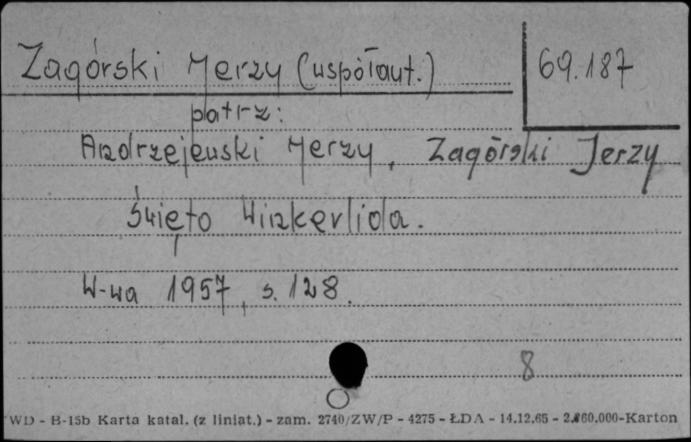 Zagórski Jerzy (współaut.)
69.187
patrz:
Andrzejewski Jerzy, Zagórski Jerzy
Święto Winkerlida.
W-wa 1957, s. 128.
8
WD - B-15b Karta katal. (z liniat.) - zam. 2740/ZW/P - 4275 - ŁDA - 14.12.65 - 2.860.000-Karton